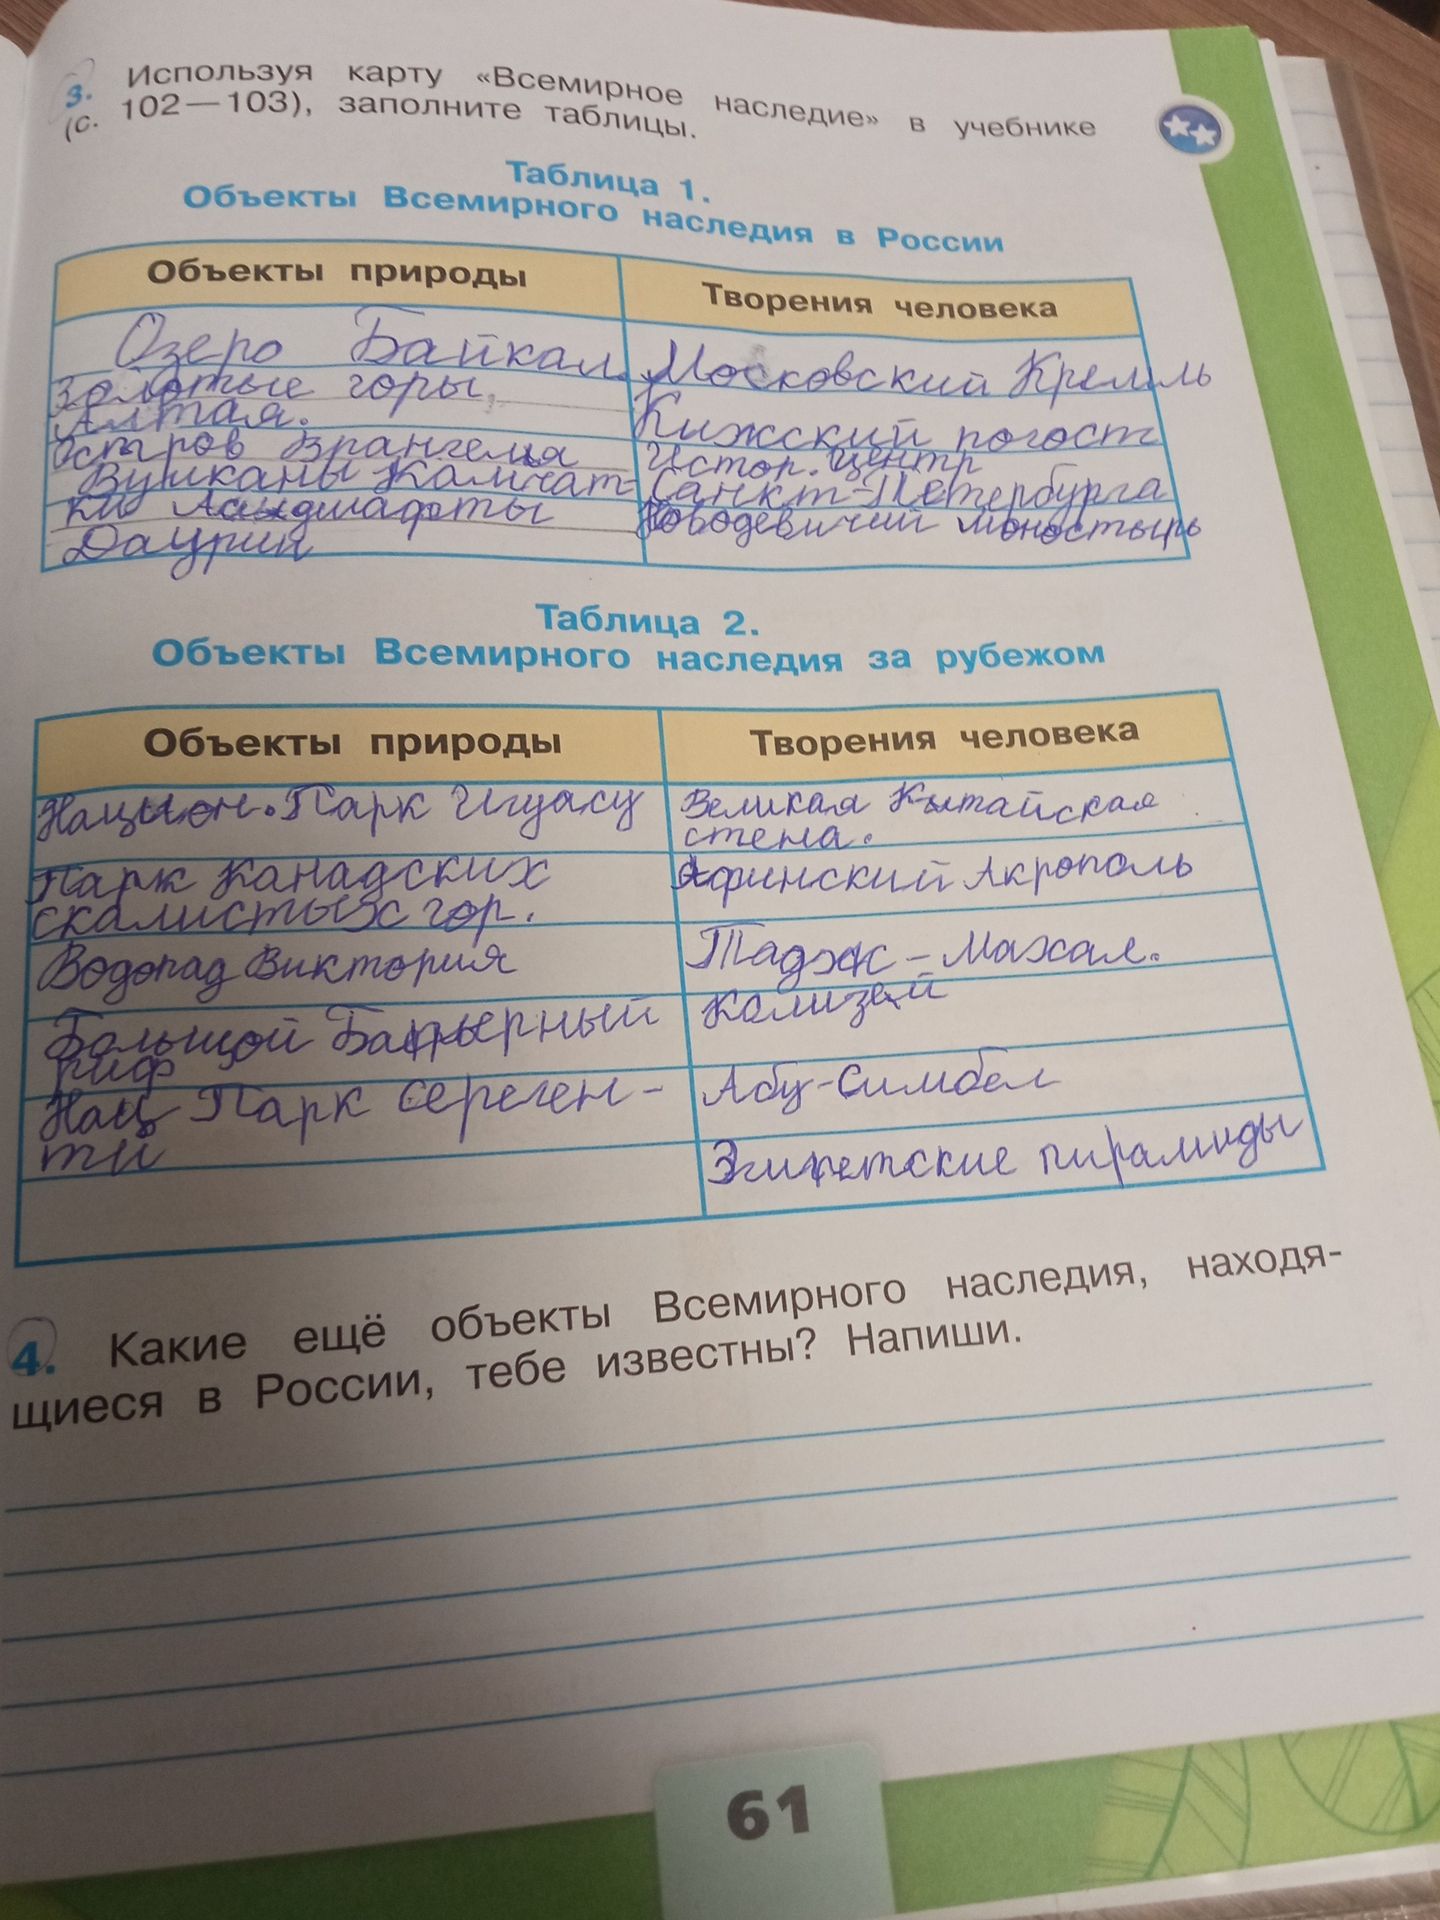 3. Используя карту «Всемирное наследие» в учебнике
(с. 102—103), заполните таблицы.
Таблица 1.
Объекты Всемирного наследия в России
Объекты природы
Творения человека
Озеро Байкал.
Золотые горы
Алтая.
Остров Врангеля
Вулканы Камчат-
ки Ландшафты
Даурии
Московский Кремль
Кижский погост
Истор. центр
Санкт-Петербурга
Новодевичий моностырь
Таблица 2.
Объекты Всемирного наследия за рубежом
Объекты природы
Творения человека
Национ. Парк Игуасу
Парк Канадских
скалистых гор.
Водопад Виктория
Большой Барьерный
риф
Нац Парк Сереген-
ти
Великая Китайская
стена.
Афинский Акрополь
Тадж-Махал.
Колизей
Абу-Симбел
Египетские пирамиды
4. Какие ещё объекты Всемирного наследия, находя-
щиеся в России, тебе известны? Напиши.
61